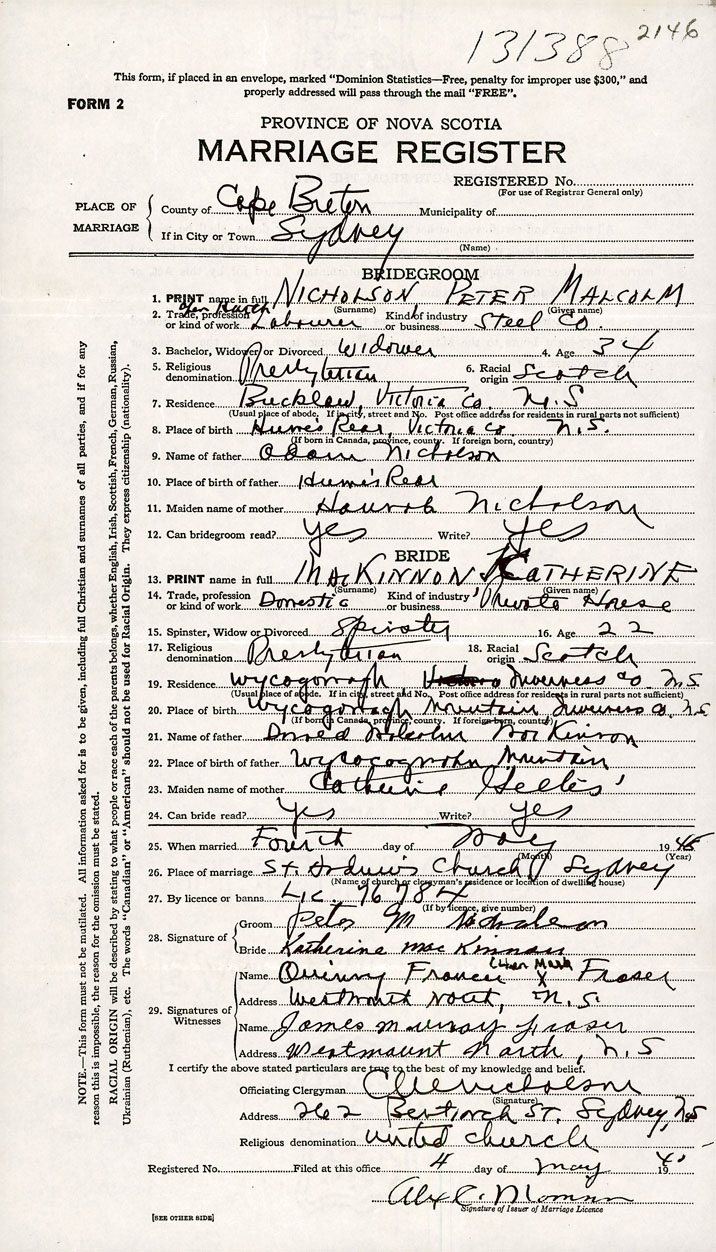 131388 2146
This form, if placed in an envelope, marked "Dominion Statistics—Free, penalty for improper use $300," and
properly addressed will pass through the mail "FREE".
FORM 2
PROVINCE OF NOVA SCOTIA
MARRIAGE REGISTER
REGISTERED No.
(For use of Registrar General only)
PLACE OF MARRIAGE
County of Cape Breton Municipality of
If in City or Town Sydney
(Name)
BRIDEGROOM
1. PRINT name in full NICHOLSON PETER MALCOLM
(Surname) (Given name)
2. Trade, profession or kind of work Labourer Kind of industry or business Steel Co.
3. Bachelor, Widower or Divorced Widower 4. Age 34
5. Religious denomination Presbyterian 6. Racial origin Scotch
7. Residence Bucklaw, Victoria Co. N.S
(Usual place of abode. If in city, street and No. Post office address for residents in rural parts not sufficient)
8. Place of birth Hume's Rear, Victoria Co. N.S.
(If born in Canada, province, county. If foreign born, country)
9. Name of father Nicholson
10. Place of birth of father Hume's Rear
11. Maiden name of mother Hannah Nicholson
12. Can bridegroom read? yes Write? yes
BRIDE
13. PRINT name in full MACKINNON KATHERINE
(Surname) (Given name)
14. Trade, profession or kind of work Domestic Kind of industry or business Private House
15. Spinster, Widow or Divorced Spinster 16. Age 22
17. Religious denomination Presbyterian 18. Racial origin Scotch
19. Residence Wycogomagh Inverness Co. N.S
(Usual place of abode. If in city, street and No. Post office address for residents in rural parts not sufficient)
20. Place of birth Wycogomagh Mountain Inverness Co. N.S
(If born in Canada, province, county. If foreign born, country)
21. Name of father Donald Malcolm MacKinnon
22. Place of birth of father Wycocogmohn Mountain
23. Maiden name of mother Catherine Gillis
24. Can bride read? yes Write? yes
25. When married Fourth day of May 1945
(Month) (Year)
26. Place of marriage St. Andrew's Church, Sydney
(Name of church or clergyman's residence or location of dwelling house)
27. By licence or banns Lic. 76784
(If by licence, give number)
28. Signature of
Groom Peter M Nicholson
Bride Katherine MacKinnon
29. Signatures of Witnesses
Name Francis X Fraser
(Her Mark)
Address Westmount North, N.S.
Name James Murray Fraser
Address Westmount North, N.S
I certify the above stated particulars are true to the best of my knowledge and belief.
Officiating Clergyman Nicholson
(Signature)
Address 262 St. Sydney, N.S
Religious denomination United Church
Registered No. Filed at this office 4 day of May 19
Signature of Issuer of Marriage Licence
[SEE OTHER SIDE]
NOTE.—This form must not be mutilated. All information asked for is to be given, including full Christian and surnames of all parties, and if for any
reason this is impossible, the reason for the omission must be stated.
RACIAL ORIGIN will be described by stating to what people or race each of the parents belongs, whether English, Irish, Scottish, French, German, Russian,
Ukrainian (Ruthenian), etc. The words "Canadian" or "American" should not be used for Racial Origin. They express citizenship (nationality).